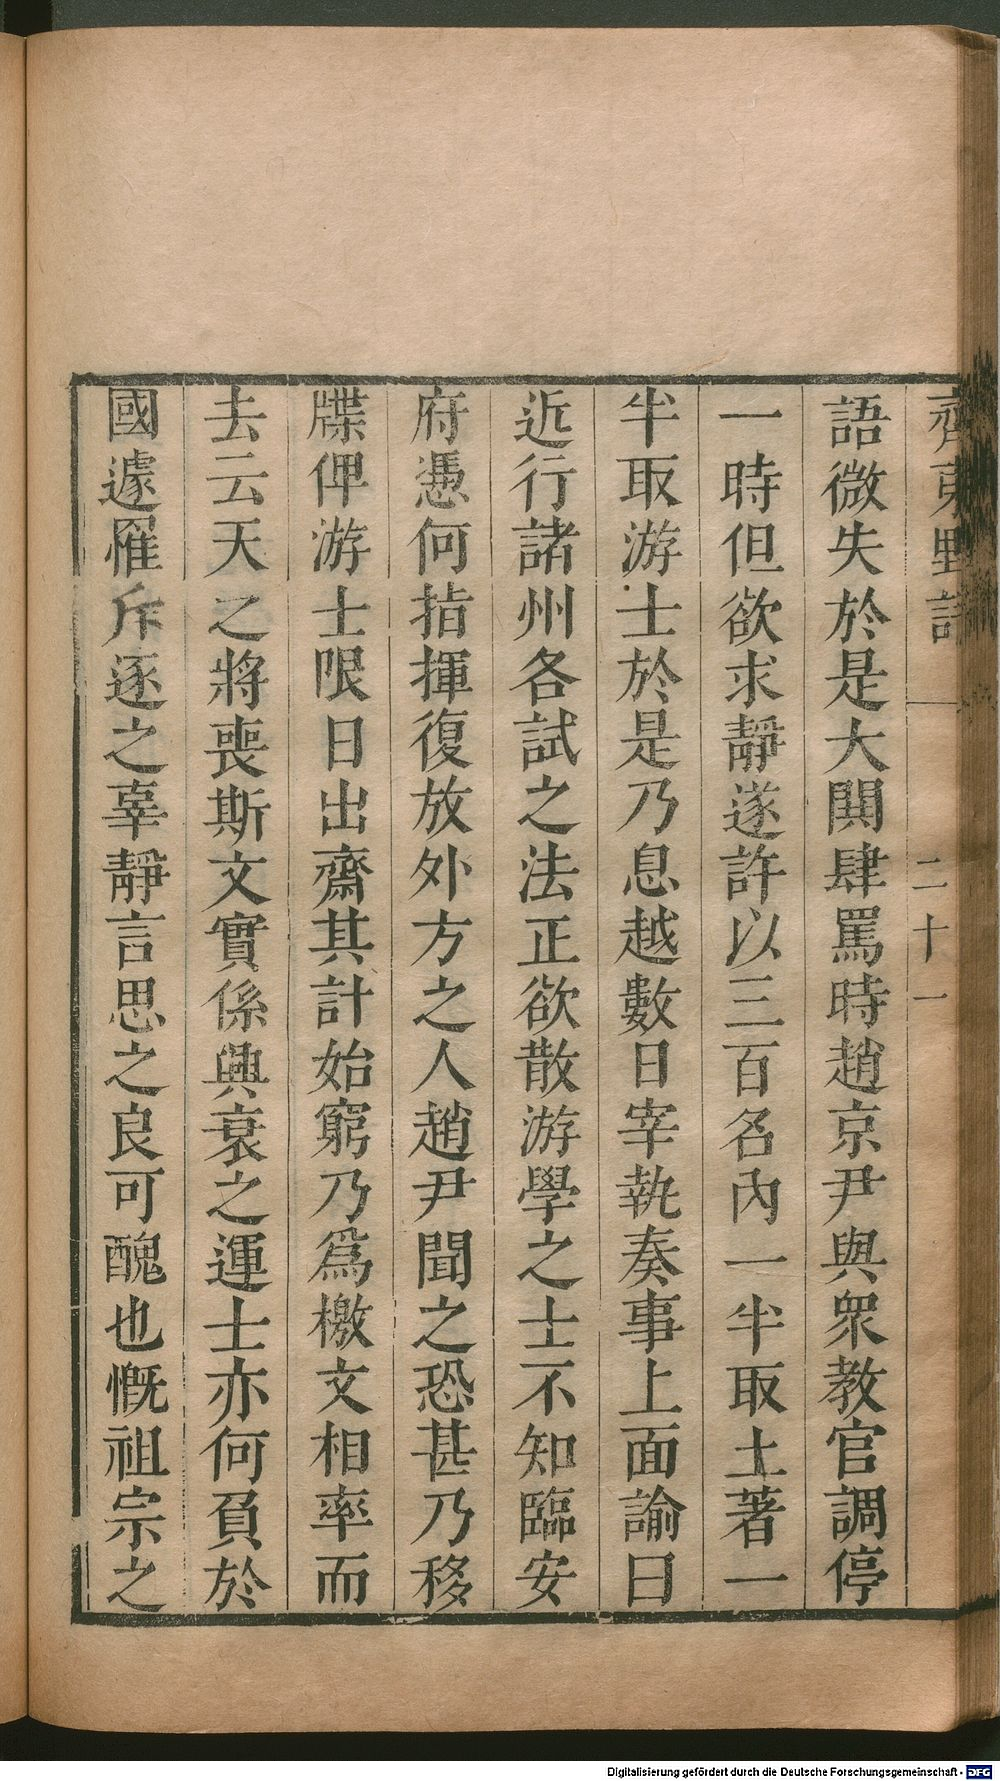 齊東野語　二十一
語微失於是大閧肆罵時趙京尹與衆教官調停
一時但欲求靜遂許以三百名內一半取土著一
半取游士於是乃息越數日宰執奏事上面諭曰
近行諸州各試之法正欲散游學之士不知臨安
府憑何指揮復放外方之人趙尹聞之恐甚乃移
牒俾游士限日出齋其計始窮乃爲檄文相率而
去云天之將喪斯文實係興衰之運士亦何負於
國遽罹斥逐之辜靜言思之良可醜也慨祖宗之
Digitalisierung gefördert durch die Deutsche Forschungsgemeinschaft - DFG